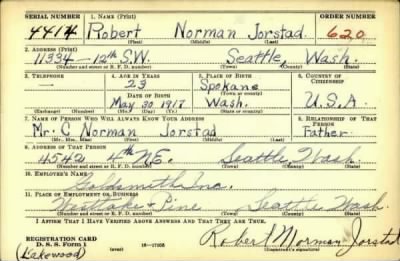 SERIAL NUMBER 1. NAME (Print) ORDER NUMBER
4414 Robert Norman Jorstad 620
(First) (Middle) (Last)
2. ADDRESS (Print)
11334-12th S.W. Seattle, Wash.
(Number and street or R. F. D. number) (Town) (County) (State)
3. TELEPHONE 4. AGE IN YEARS 5. PLACE OF BIRTH 6. COUNTRY OF CITIZENSHIP
— 23 Spokane
DATE OF BIRTH (Town or county)
May 30 1917 Wash. U.S.A.
(Exchange) (Number) (Mo.) (Day) (Yr.) (State or country)
7. NAME OF PERSON WHO WILL ALWAYS KNOW YOUR ADDRESS 8. RELATIONSHIP OF THAT PERSON
Mr. C Norman Jorstad Father
(Mr., Mrs., Miss) (First) (Middle) (Last)
9. ADDRESS OF THAT PERSON
4542 4th N.E. Seattle Wash.
(Number and street or R. F. D. number) (Town) (County) (State)
10. EMPLOYER'S NAME
Goldsmith Inc.
11. PLACE OF EMPLOYMENT OR BUSINESS
Westlake + Pine Seattle Wash.
(Number and street or R. F. D. number) (Town) (County) (State)
I AFFIRM THAT I HAVE VERIFIED ABOVE ANSWERS AND THAT THEY ARE TRUE.
REGISTRATION CARD
D. S. S. Form 1 (over) 16—17105 Robert Norman Jorstad
(Registrant's signature)
(Lakewood)